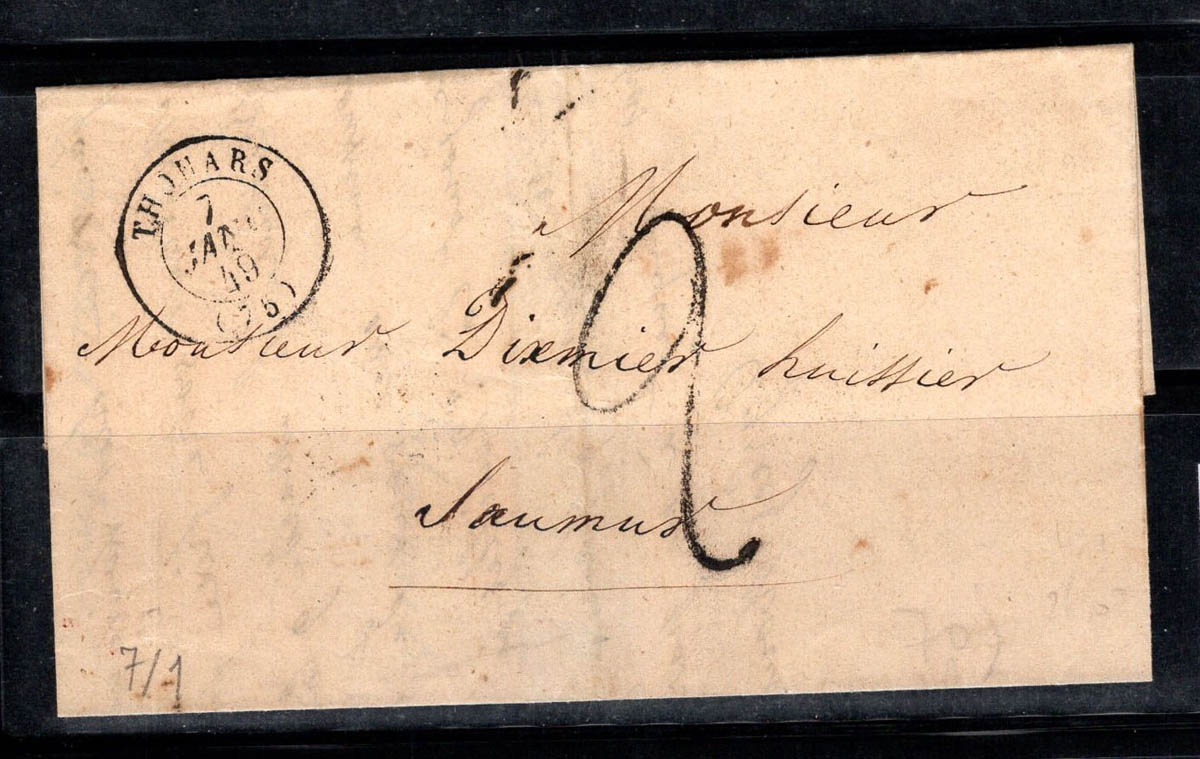 THOUARS
7
JANV
49
(75)
Monsieur
Monsieur Dixmier huissier
Saumur
2
7/1